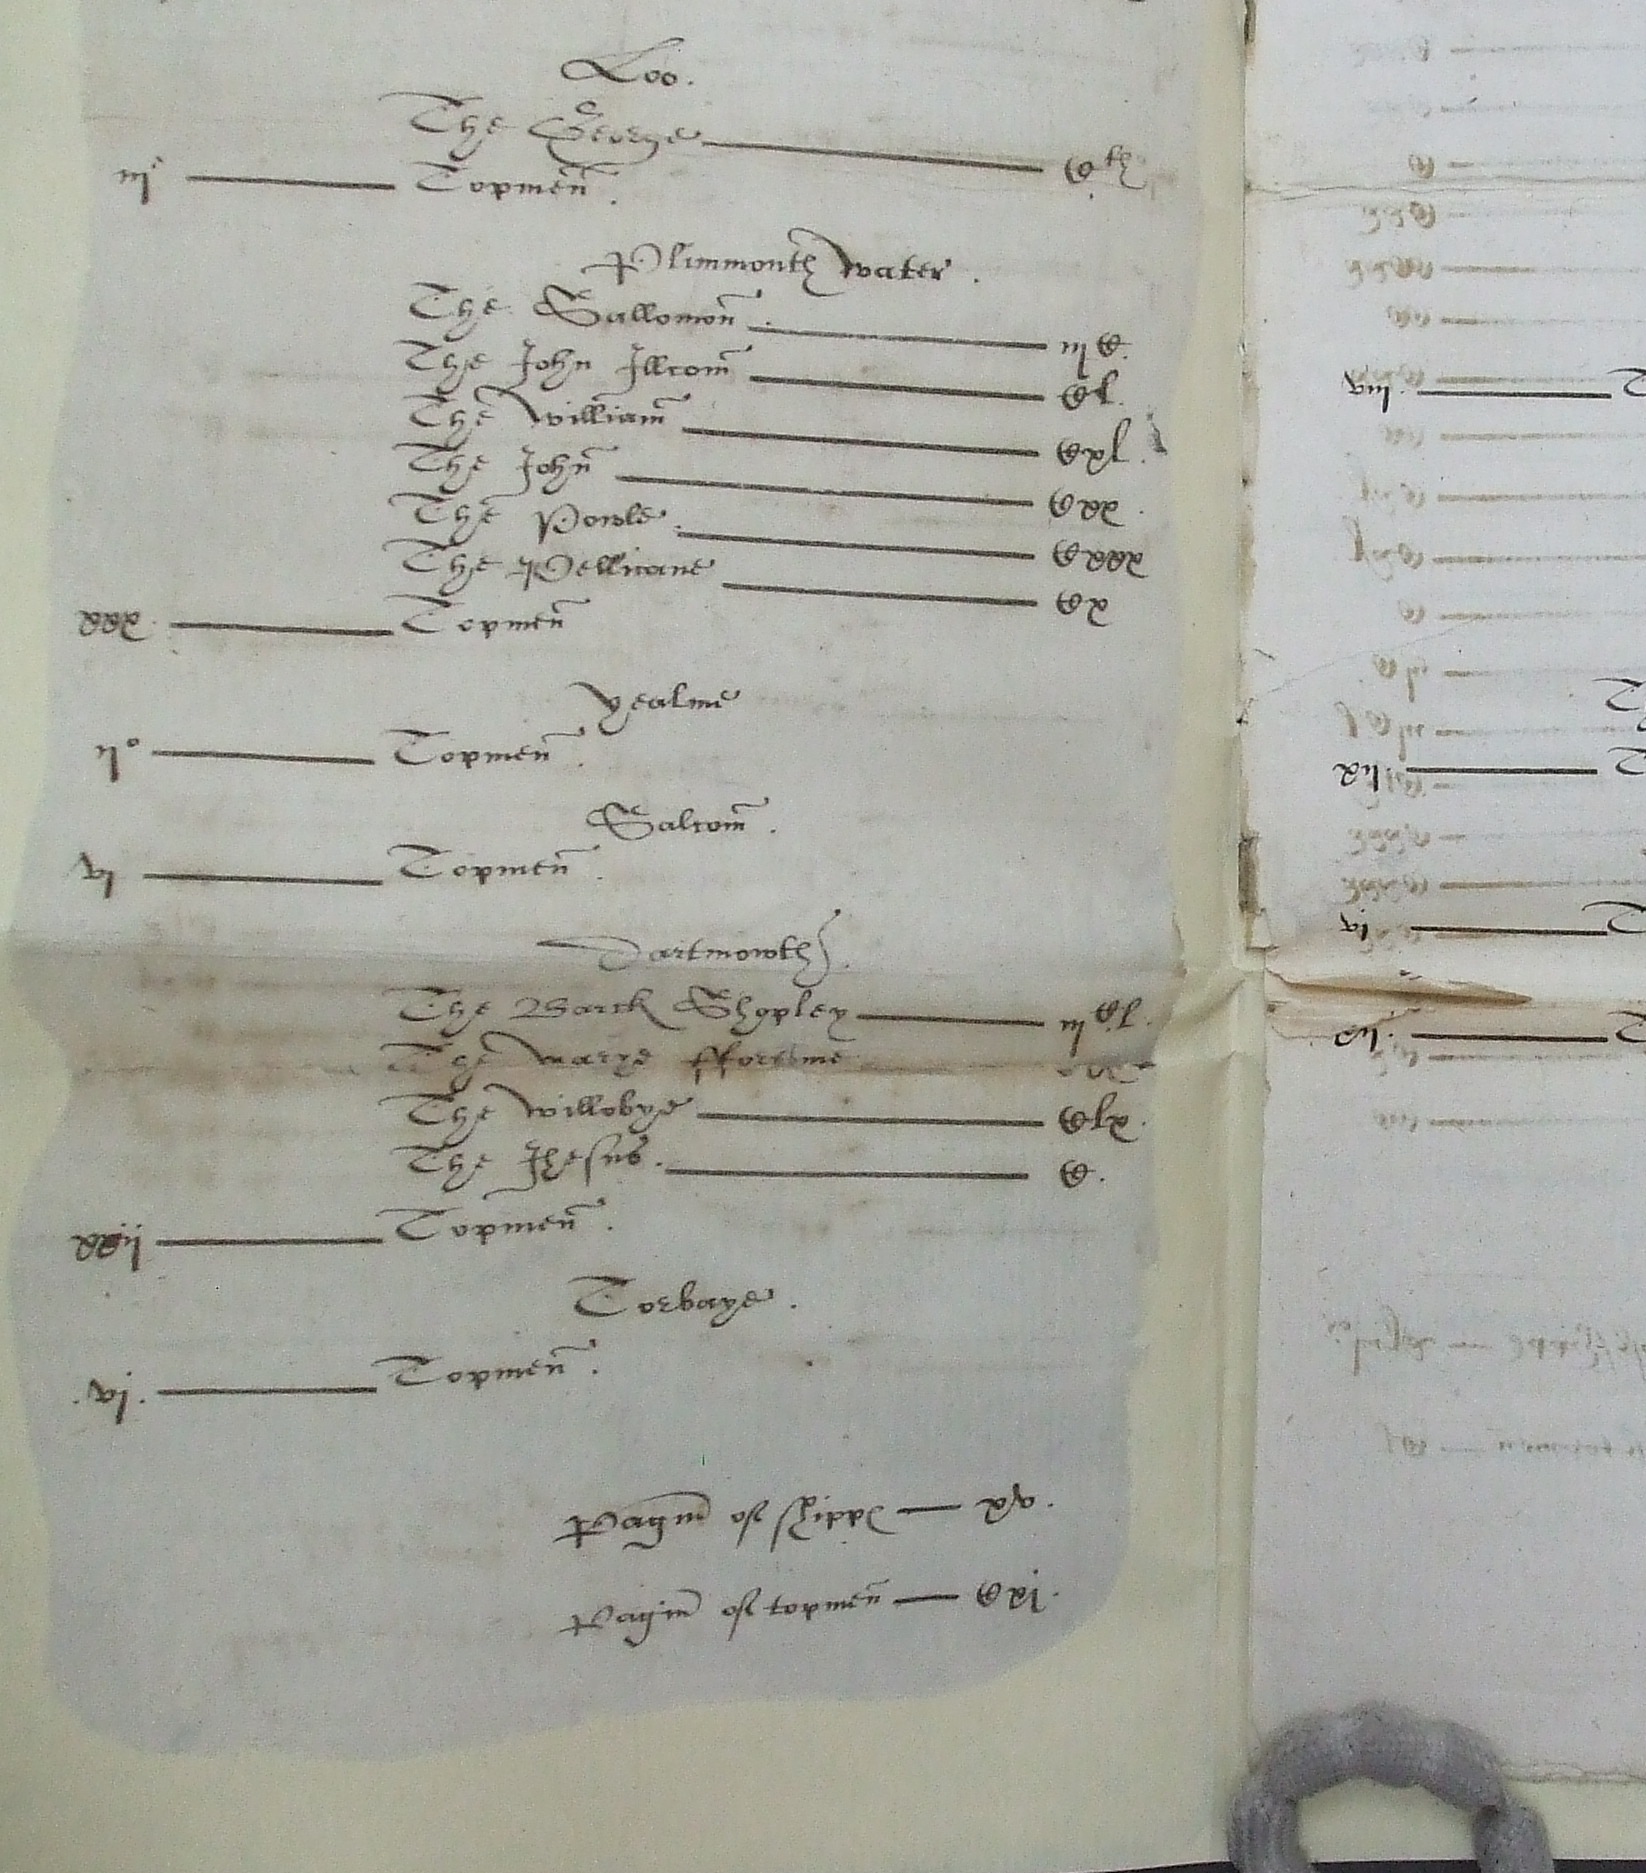 Loo.
The George — Cth
iijᵉ — Topmen̄.
Plimmouth water.
The Sallomon̄. — iijC.
The John Illcom̄ — Cl.
The william̄ — Cxl.
The John̄ — Cxx.
The Powle. — Cxxx
The Pellicane — Cx
xxx. — Topmen̄
yealme
ijᵒ — Topmen̄.
Salcom̄.
vi — Topmen̄.
Dartmowth.
The Barck Shopley — iijCl.
The marye
The willobye — Clx.
The Jhesus. — C.
xxij — Topmen̄.
Torbaye.
.vj. — Topmen̄.
Pagin̄ of shippes — xv.
Pagin̄ of topmen̄ — Cxj.
viij.
xlij
vi
xij.